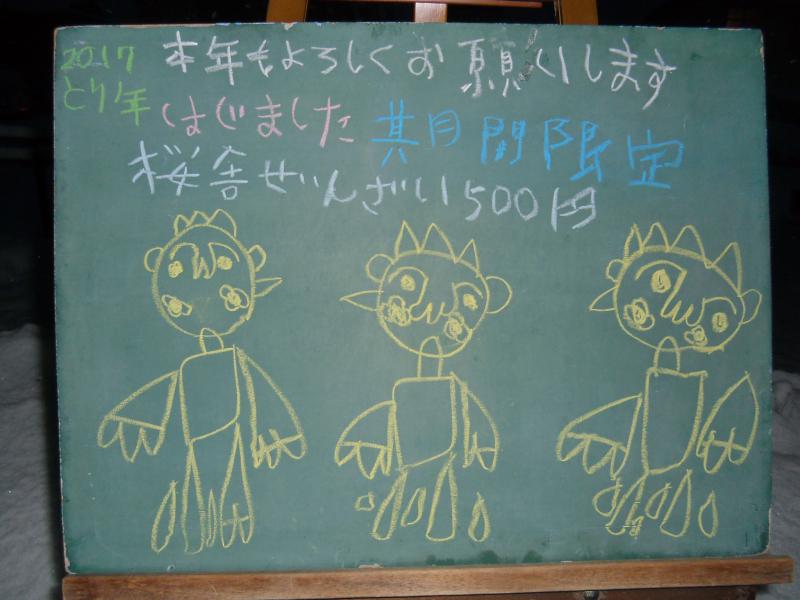 2017
とり年
本年もよろしくお願いします
はじました 其月間限定
桜舎ぜんざい500円